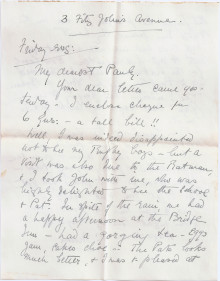 3 Fitz Johns Avenue.
Friday
My dearest
Your dear letter came yes-
terday. I enclose cheque for
6 - a tall bill!!
Well I was indeed disappointed
not to see my Rugby boys - but a
visit was also due to the
& I took John with me, who was
delighted to see the school
& Pat. In spite of the rain we had
a happy afternoon at the Bridge
Inn - had a gorging tea - Eggs
Jam, cakes - The Pats looks
much better, & I was pleased at